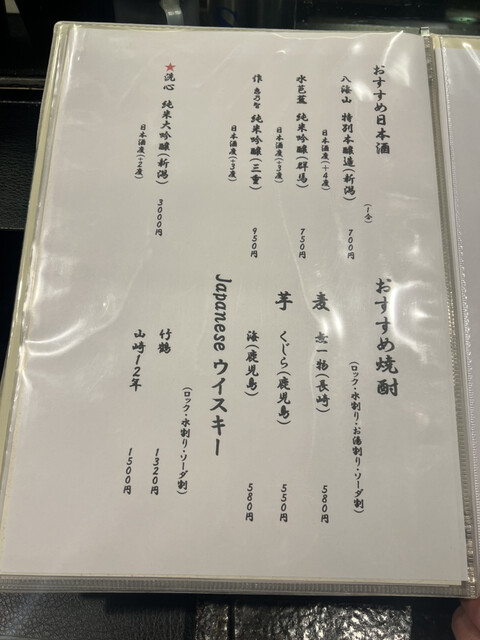 おすすめ日本酒
(1合)
八海山 特別本醸造(新潟) 700円
日本酒度(+4度)
水芭蕉 純米吟醸(群馬) 750円
日本酒度(+3度)
作 恵乃智 純米吟醸(三重) 950円
日本酒度(+3度)
★洗心 純米大吟醸(新潟) 3000円
日本酒度(+2度)
おすすめ焼酎
(ロック・水割り・お湯割り・ソーダ割)
麦 壱一物(長崎) 580円
芋 くじら(鹿児島) 550円
海(鹿児島) 580円
Japanese ウイスキー
(ロック・水割り・ソーダ割)
竹鶴 1320円
山崎12年 1500円